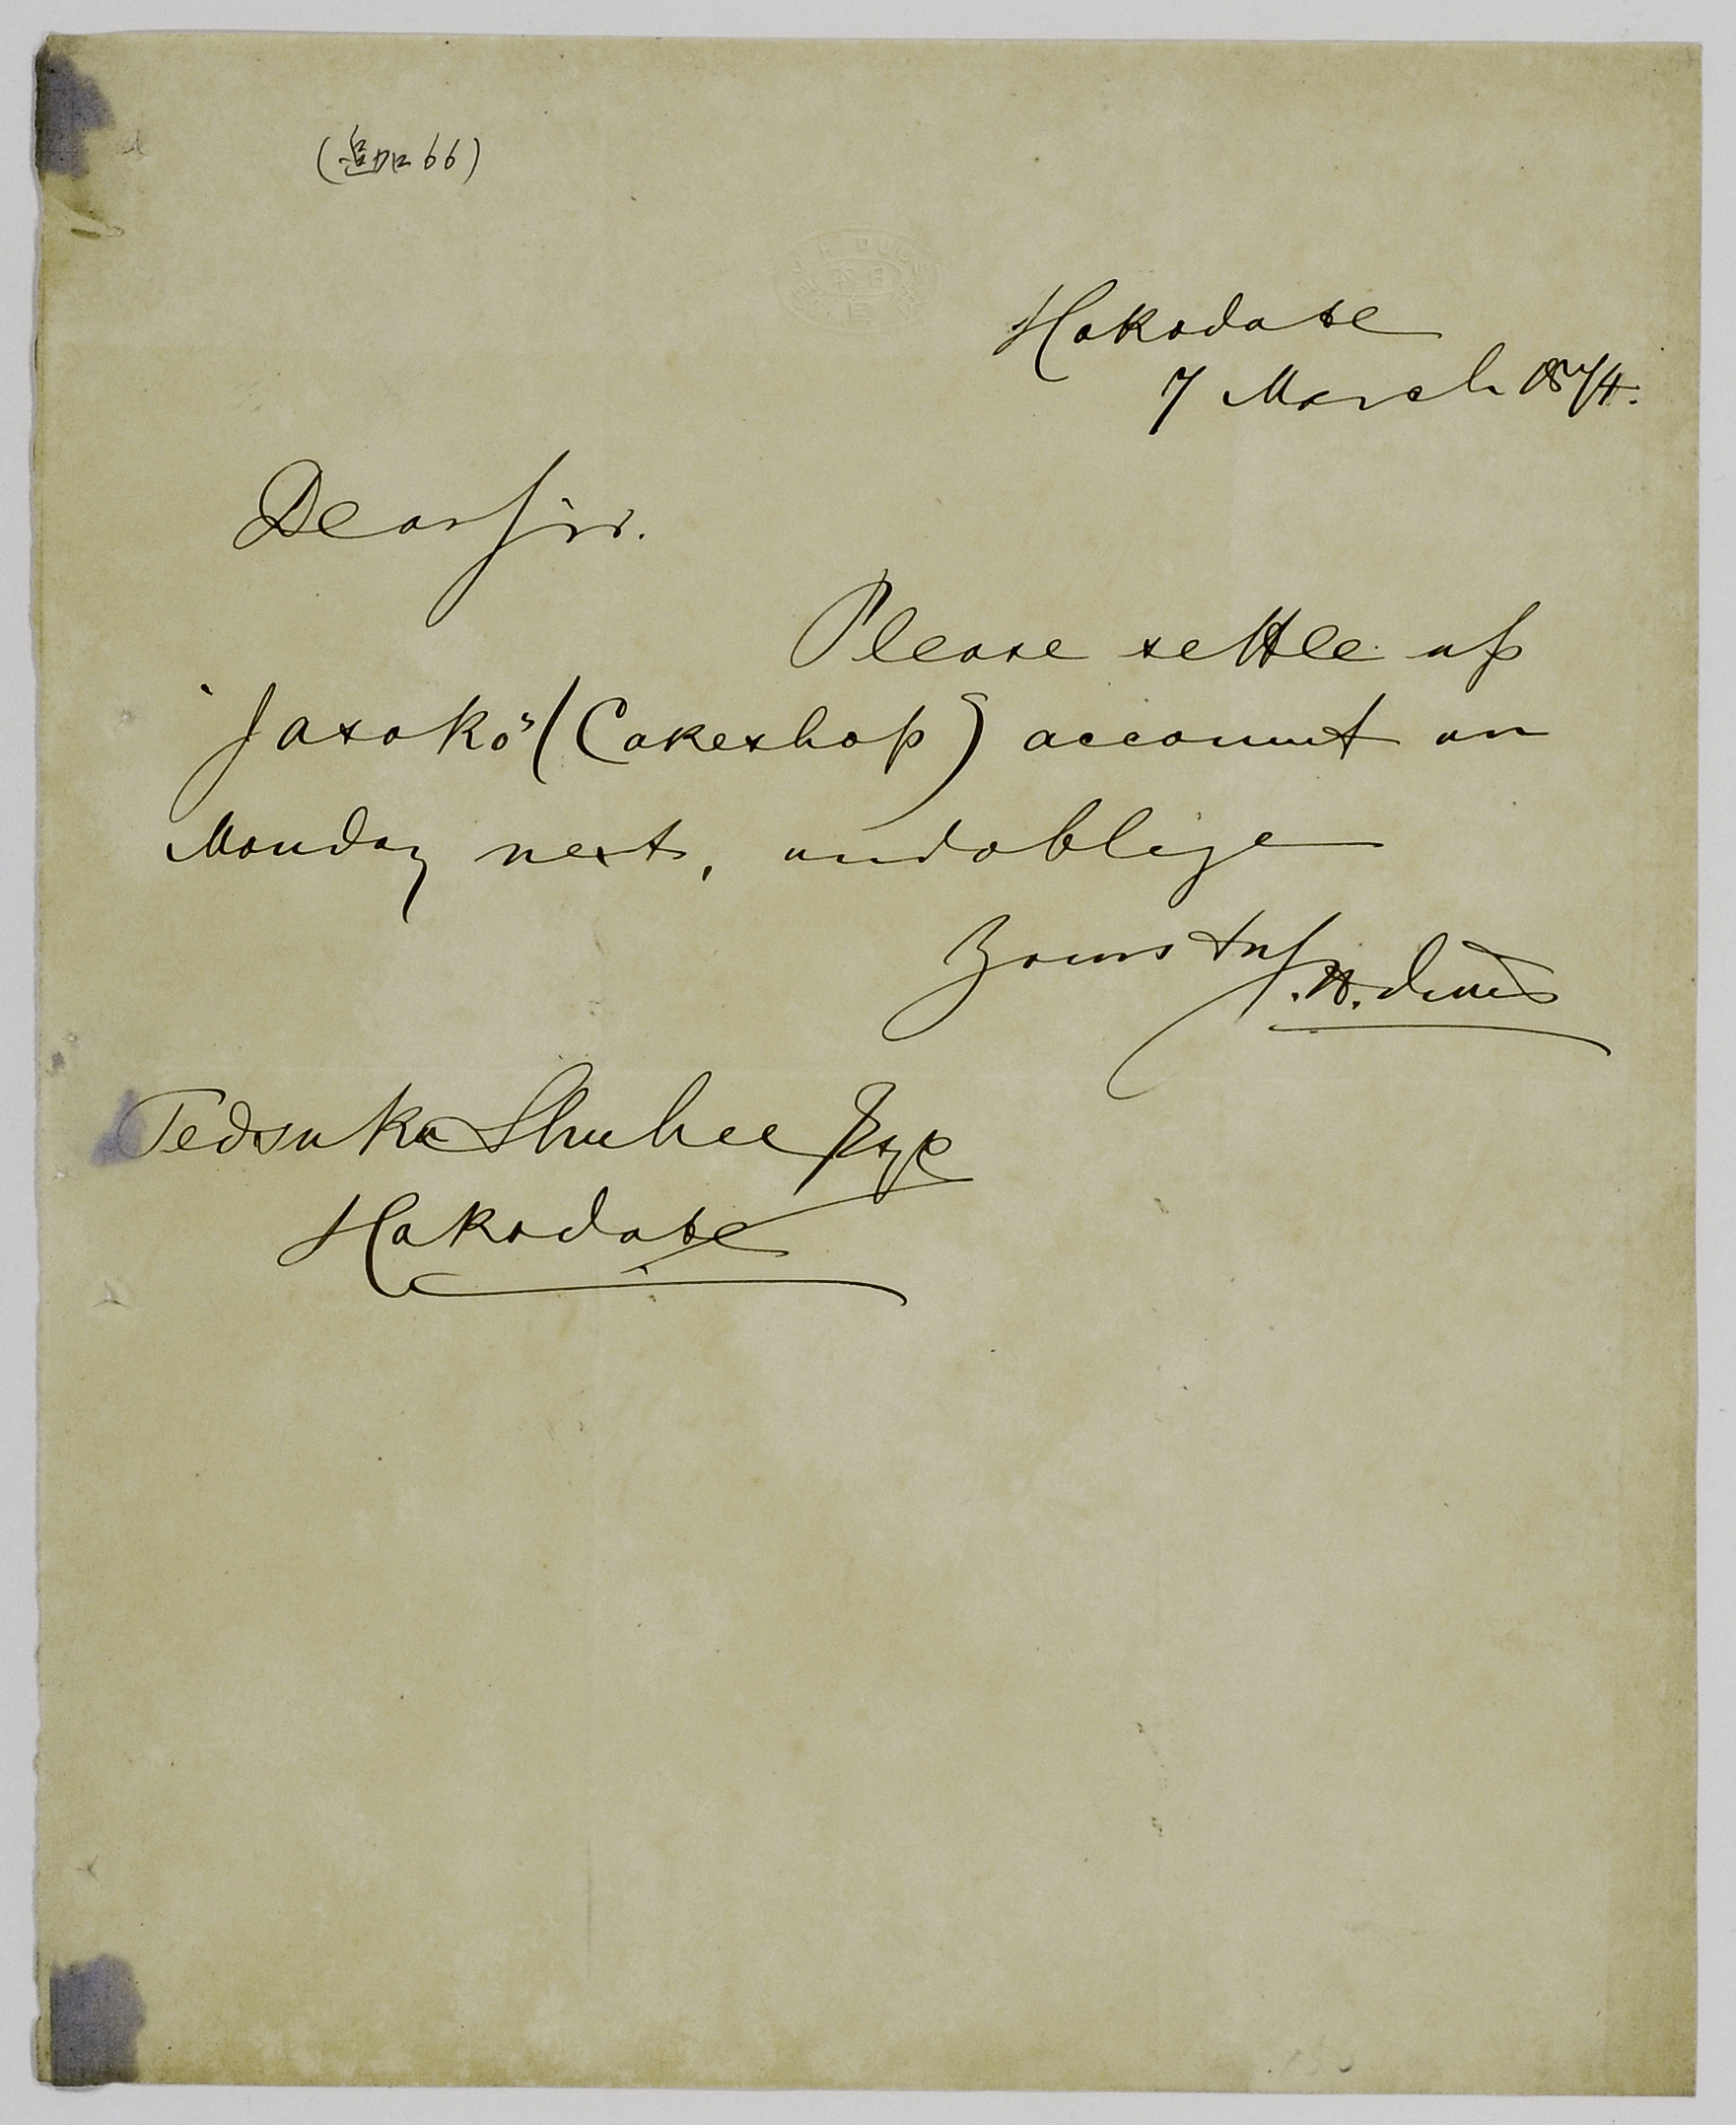 (追加66)
Hakodate
7 March 1874.
Dear Sir.
Please settle up
Jasoko's (Cakeshop) account on
Monday next, and oblige
Yours try
J.H. Duus
Tedsuka Shuhee Esqe
Hakodate